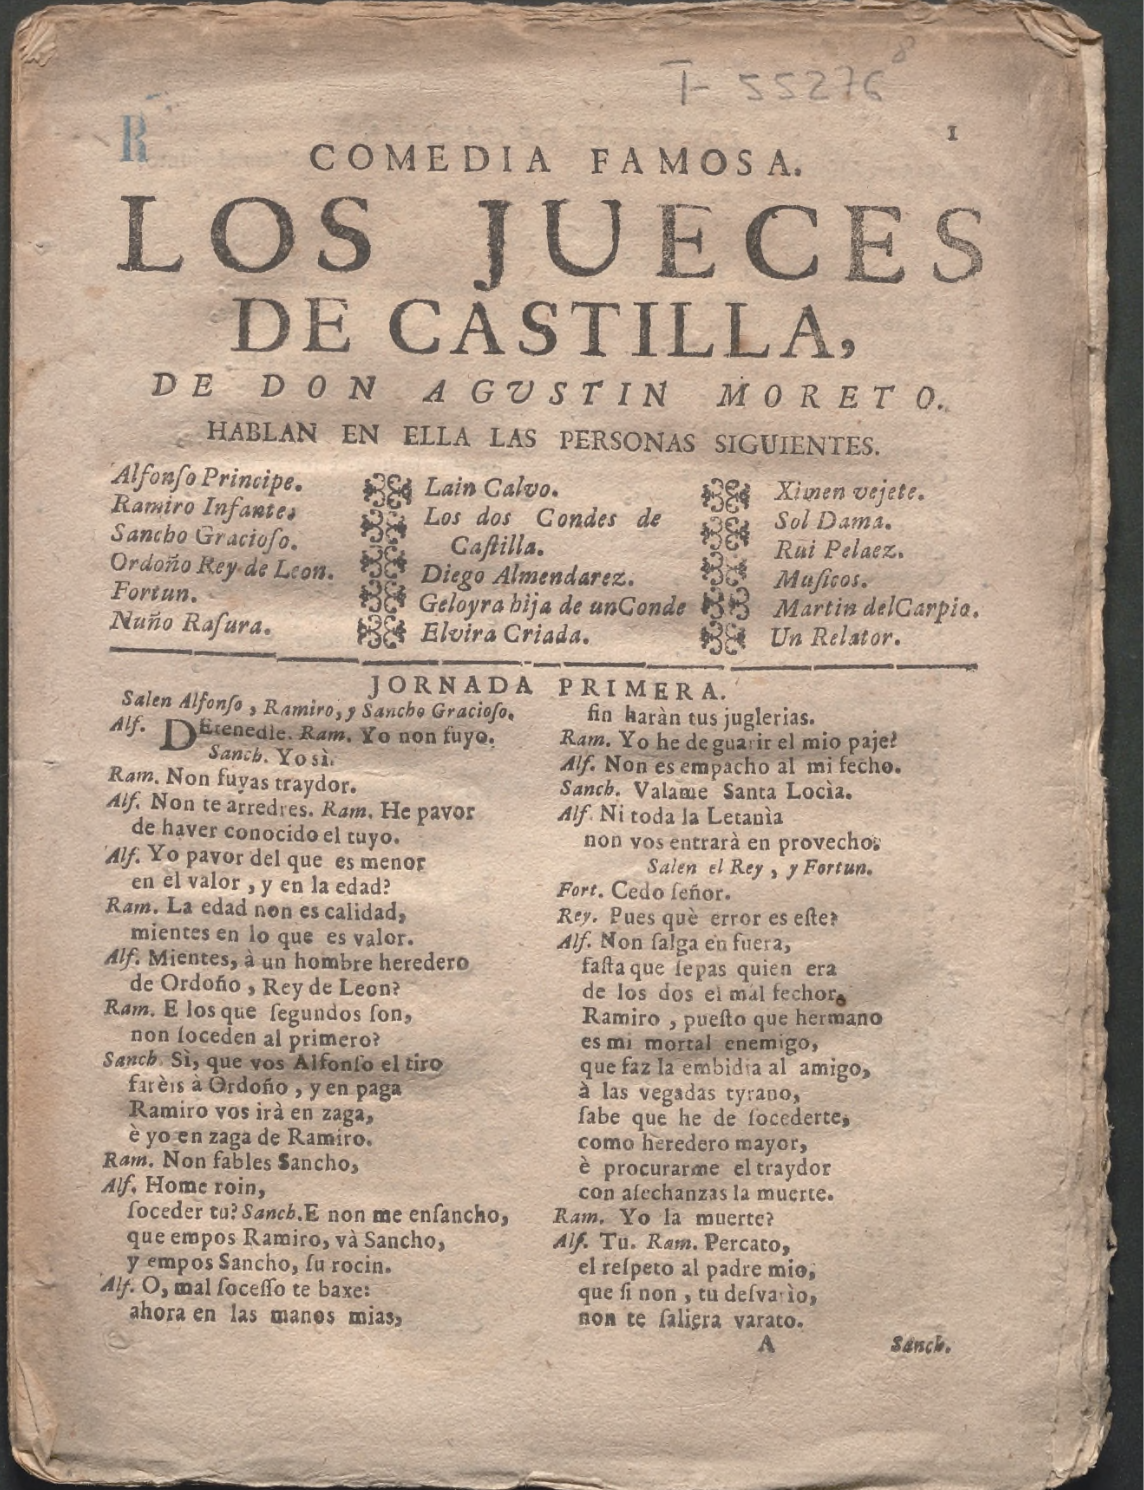 T-55276⁸
R
1
COMEDIA FAMOSA.
LOS JUECES
DE CASTILLA,
DE DON AGVSTIN MORETO.
HABLAN EN ELLA LAS PERSONAS SIGUIENTES.
Alfonſo Principe.
Ramiro Infante,
Sancho Gracioſo.
Ordoño Rey de Leon.
Fortun.
Nuño Raſura.
Lain Calvo.
Los dos Condes de
Caſtilla.
Diego Almendarez.
Geloyra hija de unConde
Elvira Criada.
Ximen vejete.
Sol Dama.
Rui Pelaez.
Muſicos.
Martin delCarpio.
Un Relator.
JORNADA PRIMERA.
Salen Alfonſo, Ramiro, y Sancho Gracioſo.
Alf. DEtenedle. Ram. Yo non fuyo.
Sanch. Yo sì.
Ram. Non fuyas traydor.
Alf. Non te arredres. Ram. He pavor
de haver conocido el tuyo.
Alf. Yo pavor del que es menor
en el valor, y en la edad?
Ram. La edad non es calidad,
mientes en lo que es valor.
Alf. Mientes, à un hombre heredero
de Ordoño, Rey de Leon?
Ram. E los que ſegundos ſon,
non ſoceden al primero?
Sanch. Sì, que vos Alfonſo el tiro
farèis à Ordoño, y en paga
Ramiro vos irà en zaga,
è yo en zaga de Ramiro.
Ram. Non fables Sancho,
Alf. Home roin,
ſoceder tu? Sanch. E non me enſancho,
que empos Ramiro, và Sancho,
y empos Sancho, ſu rocin.
Alf. O, mal ſoceſſo te baxe:
ahora en las manos mias,
fin haràn tus juglerias.
Ram. Yo he de guarir el mio paje?
Alf. Non es empacho al mi fecho.
Sanch. Valame Santa Locìa.
Alf. Ni toda la Letanìa
non vos entrarà en provecho.
Salen el Rey, y Fortun.
Fort. Cedo ſeñor.
Rey. Pues què error es eſte?
Alf. Non ſalga en fuera,
faſta que ſepas quien era
de los dos el mal fechor.
Ramiro, pueſto que hermano
es mi mortal enemigo,
que faz la embidia al amigo,
à las vegadas tyrano,
ſabe que he de ſocederte,
como heredero mayor,
è procurarme el traydor
con aſechanzas la muerte.
Ram. Yo la muerte?
Alf. Tu. Ram. Percato,
el reſpeto al padre mio,
que ſi non, tu deſvarìo,
non te ſaliera varato.
A
Sanch.